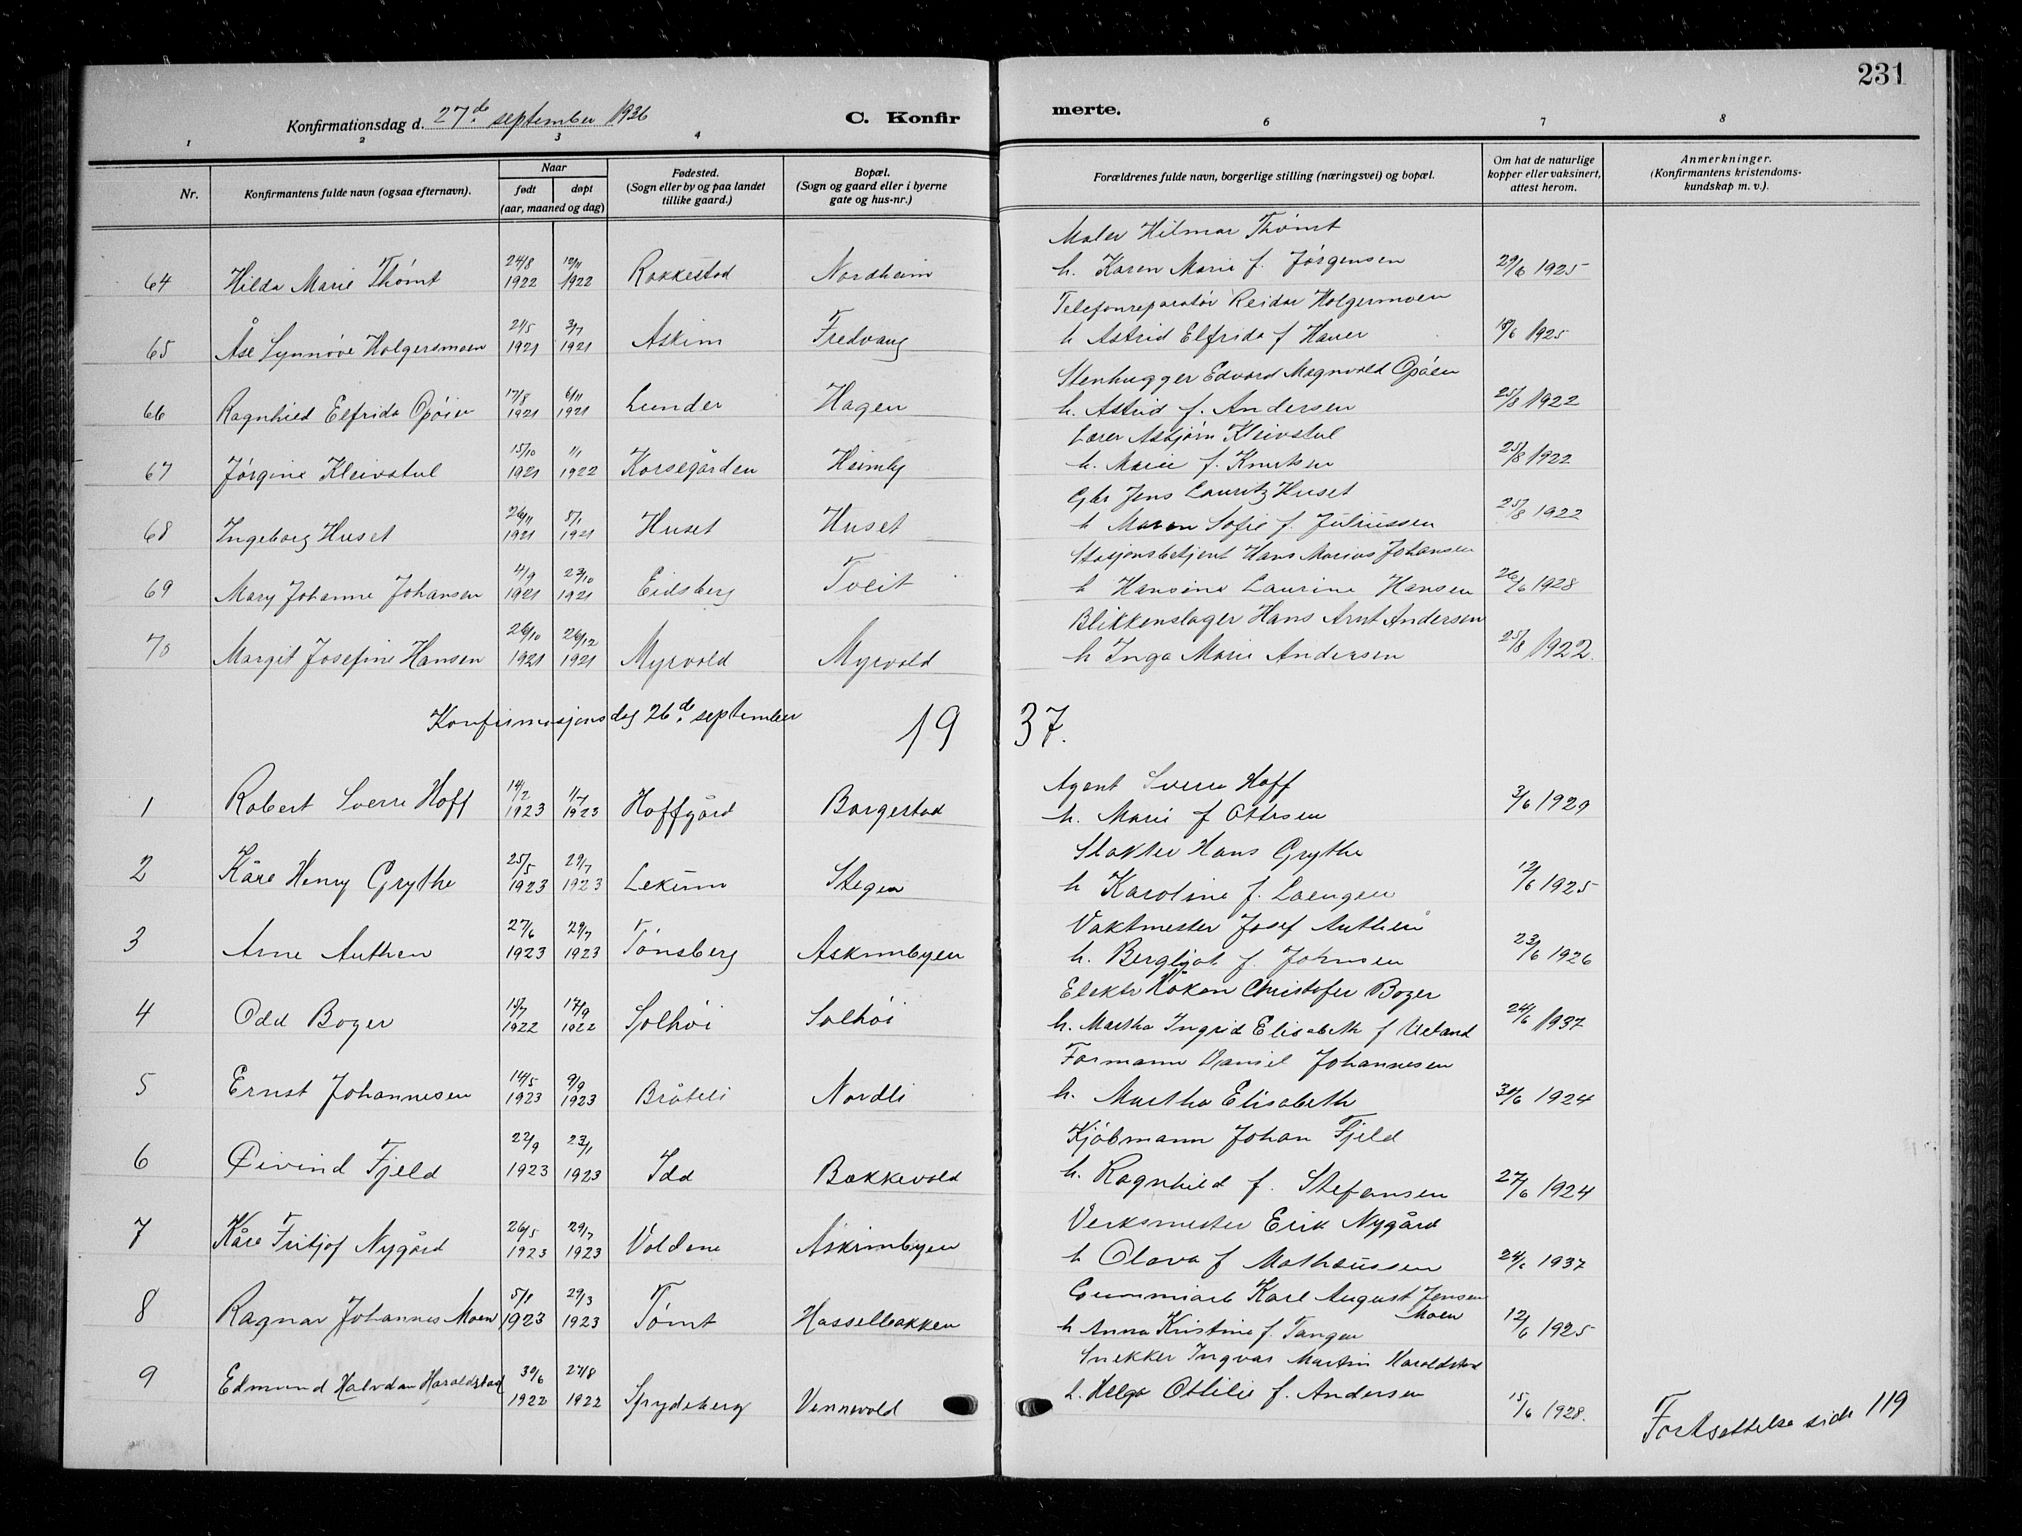 231
Konfirmationsdag d. 27de september 1936
C. Konfir
merte.
1 2 3 4 6 7 8
Nr.
Konfirmantens fulde navn (ogsaa efternavn).
Naar
født
døpt
(aar, maaned og dag)
Fødested.
(Sogn eller by og paa landet
tillike gaard.)
Bopæl.
(Sogn og gaard eller i byerne
gate og hus-nr.)
Forældrenes fulde navn, borgerlige stilling (næringsvei) og bopæl.
Om hat de naturlige
kopper eller vaksinert,
attest herom.
Anmerkninger.
(Konfirmantens kristendoms-
kundskap m. v.).
Maler Hilmar Thømt
64 Hilda Marie Thømt 24/8 1922 12/11 1922 Rakkestad Nordheim h. Karen Marie f. Jørgensen 29/6 1925
Telefonreparatør Reidar Holgersmoen
65 Åse Synnøve Holgersmoen 21/5 1921 3/7 1921 Askim Fredvang h Astrid Elfrida f Hauer 18/6 1925
Stenhugger Edvard Magnvald Opøien
66 Ragnhild Elfrida Opøien 17/8 1921 6/11 1921 Lunder Hagen h. Astrid f. Andersen 25/8 1922
Lærer Asbjørn Kleivstul
67 Jørgine Kleivstul 15/10 1921 1/1 1922 Korsegården Heimly h. Marie f. Knutsen 25/8 1922
Gbr Jens Lauritz Huset
68 Ingeborg Huset 26/11 1921 5/1 1921 Huset Huset h Maren Sofie f. Juliussen 25/8 1922
Stasjonsbetjent Hans Marius Johansen
69 Mary Johanne Johansen 4/9 1921 23/10 1921 Eidsberg Tveit h Hansine Laurine Hansen 26/6 1928
Blikkenslager Hans Arnt Andersen
70 Margit Josefine Hansen 26/10 1921 26/12 1921 Myrvold Myrvold h Inga Marie Andersen 25/8 1922.
Konfirmasjonsdag 26de september 19 37.
Agent Sverre Hoff
1 Robert Sverre Hoff 14/2 1923 1/4 1923 Hoffgård Borgestad h. Marie f Ottesen 3/6 1929
Slakter Hans Grythe
2 Kåre Henry Grythe 25/5 1923 29/7 1923 Lekum Stegen h Karoline f. Laengen 12/6 1925
Vaktmester Josef Authen
3 Arne Authen 27/6 1923 29/7 1923 Tønsberg Askimbyen h. Bergljot f. Johnsen 23/6 1926
Elektr Håkon Christofer Bozer
4 Odd Bozer 15/7 1922 17/9 1922 Solhøi Solhøi h. Martha Ingrid Elisabeth f Ueland 24/6 1937
Formann Daniel Johannesen
5 Ernst Johannesen 14/5 1923 9/9 1923 Bråteli Nordli h. Martha Elisabeth 30/6 1924
Kjøbmann Johan Fjeld
6 Øivind Fjeld 22/9 1923 23/1 1923 Idd Bakkevold h. Ragnhild f. Stefansen 27/6 1924
Verksmester Erik Nygård
7 Kåre Fritjof Nygård 26/5 1923 29/7 1923 Voldene Askimbyen h Olava f Mathæussen 24/6 1937
Gummiarb Karl August Jensen
Moen
8 Ragnar Johannes Moen 5/1 1923 29/3 1923 Tømt Hasselbakken h Anna Kristine f. Tangen 12/6 1925
Snekker Ingvar Martin Haraldstad
9 Edmund Halvdan Haraldstad 30/6 1922 27/8 1922 Spydeberg Vennevold h. Helga Ottilie f. Andersen 15/6 1928.
Fortsettelse side 119